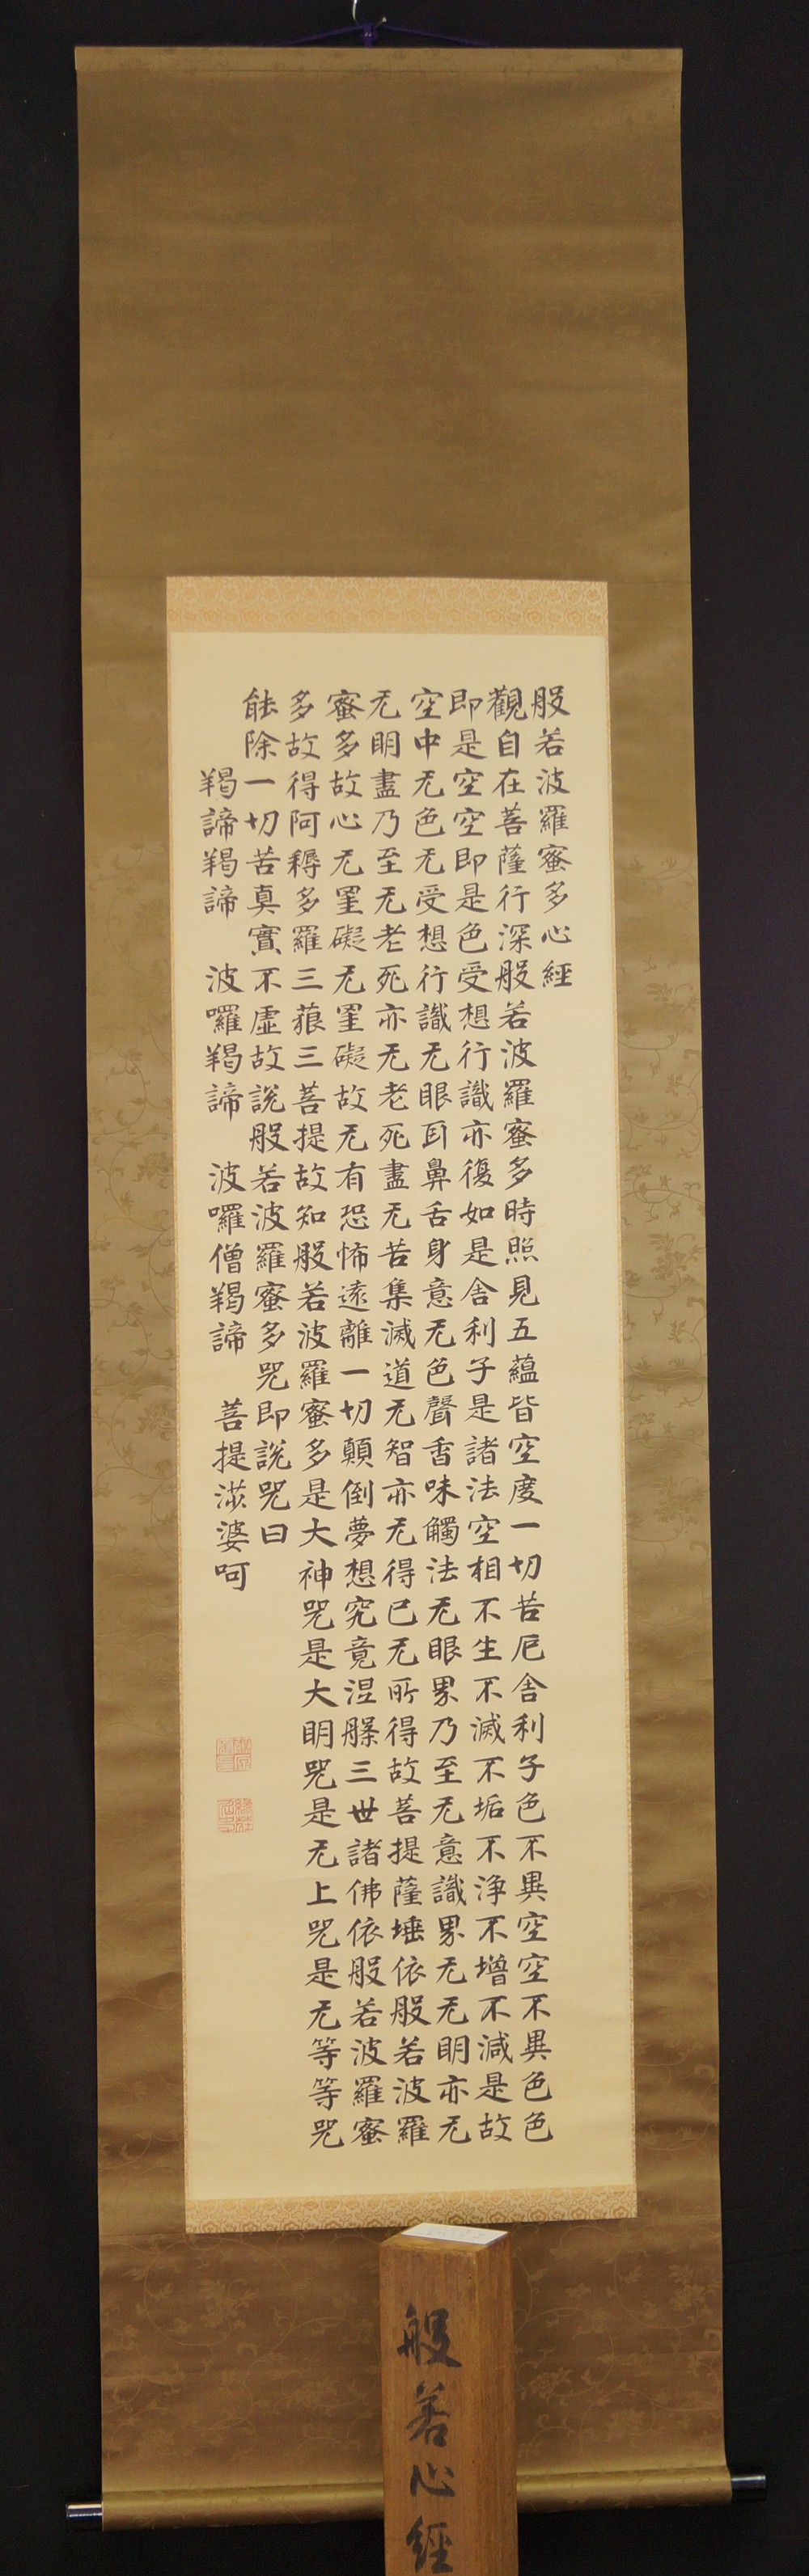 般若波羅蜜多心經
觀自在菩薩行深般若波羅蜜多時照見五蘊皆空度一切苦厄舍利子色不異空空不異色色
即是空空即是色受想行識亦復如是舍利子是諸法空相不生不滅不垢不淨不增不減是故
空中无色无受想行識无眼耳鼻舌身意无色聲香味觸法无眼界乃至无意識界无无明亦无
无明盡乃至无老死亦无老死盡无苦集滅道无智亦无得已无所得故菩提薩埵依般若波羅
蜜多故心无罣礙无罣礙故无有恐怖遠離一切顛倒夢想究竟涅槃三世諸佛依般若波羅蜜
多故得阿耨多羅三藐三菩提故知般若波羅蜜多是大神咒是大明咒是无上咒是无等等咒
能除一切苦真實不虛故說般若波羅蜜多咒即說咒曰
羯諦羯諦 波囉羯諦 波囉僧羯諦 菩提娑婆呵
般若心經